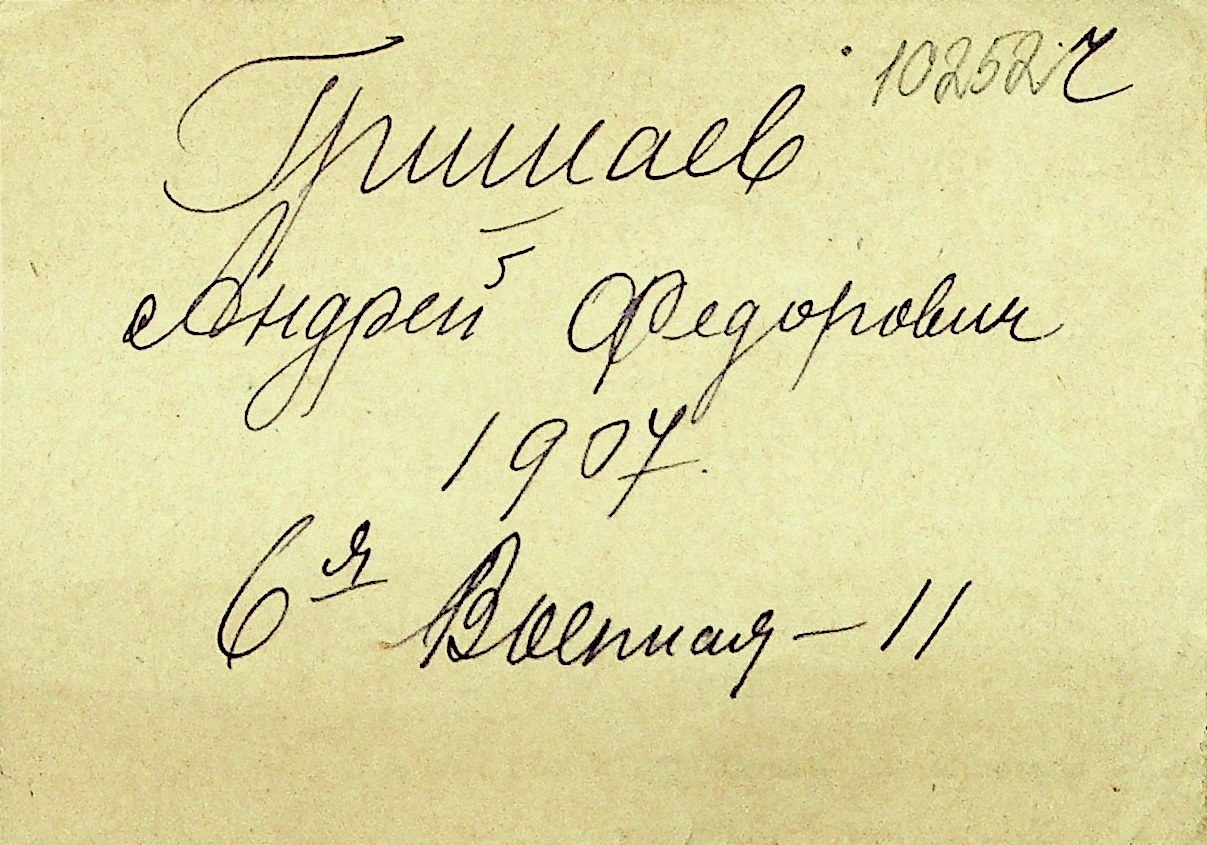 10252 ч
Гришаев
Андрей Федорович
1907.
6я Военная - 11